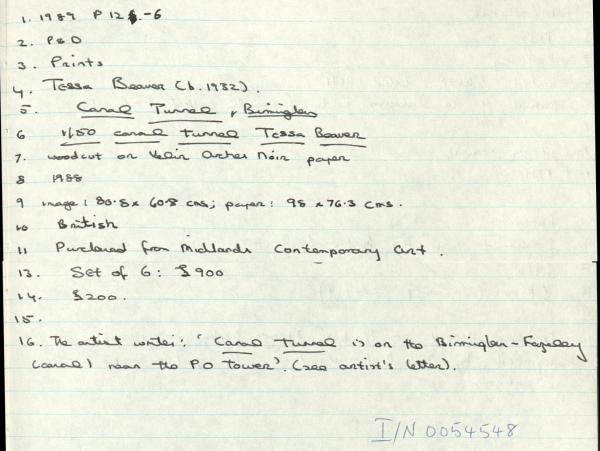 1. 1989 P 12 .-6
2. P&D
3. Prints
4. Tessa Beaver (b.1932).
5. Canal Tunnel, Birmingham
6 1/50 canal tunnel Tessa Beaver
7. woodcut on Velin Arches Noir paper
8 1988
9 image: 80.8 x 60.8 cms; paper: 98 x 76.3 cms.
10 British
11 Purchased from Midlands Contemporary Art.
13. Set of 6: £900
14. £200.
15.
16. The artist writes: 'Canal Tunnel is on the Birmingham-Fazeley
canal near the P.O Tower'. (see artist's letter).
I/N 0054548